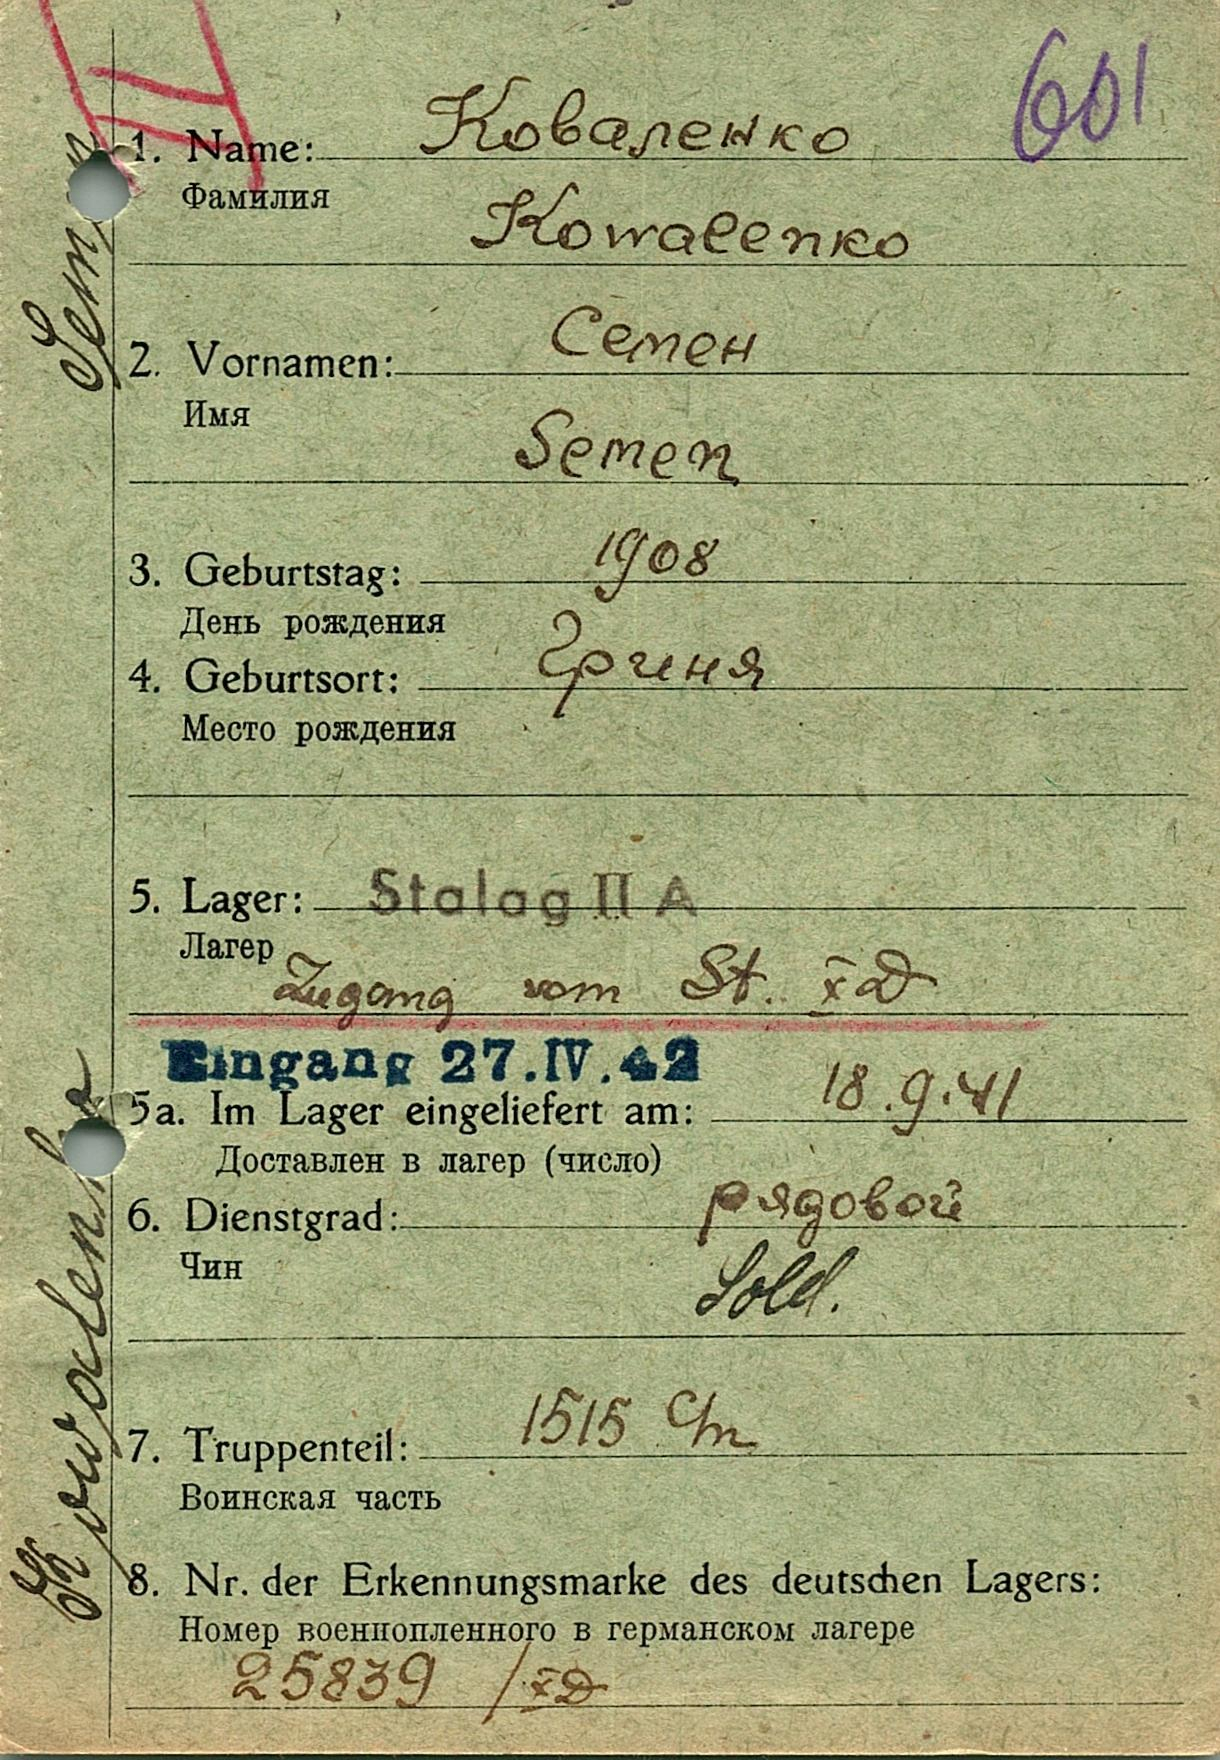 601
1. Name: Коваленко
Фамилия
Kowalenko
2. Vornamen: Семен
Имя
Semen
3. Geburtstag: 1908
День рождения
4. Geburtsort:
Место рождения
5. Lager: Stalag II A
Лагер
Zugang vom St. XD
Eingang 27.IV.42
5a. Im Lager eingeliefert am: 18.9.41
Доставлен в лагер (число)
6. Dienstgrad: рядовой
Чин
Sold.
7. Truppenteil: 1515
Воинская часть
8. Nr. der Erkennungsmarke des deutschen Lagers:
Номер военнопленного в германском лагере
25839 / XD
Kowalenko Semen